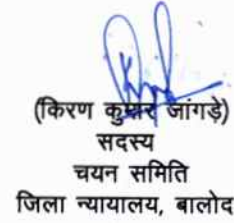 (किरण कुमार जांगड़े)
सदस्य
चयन समिति
जिला न्यायालय, बालोद